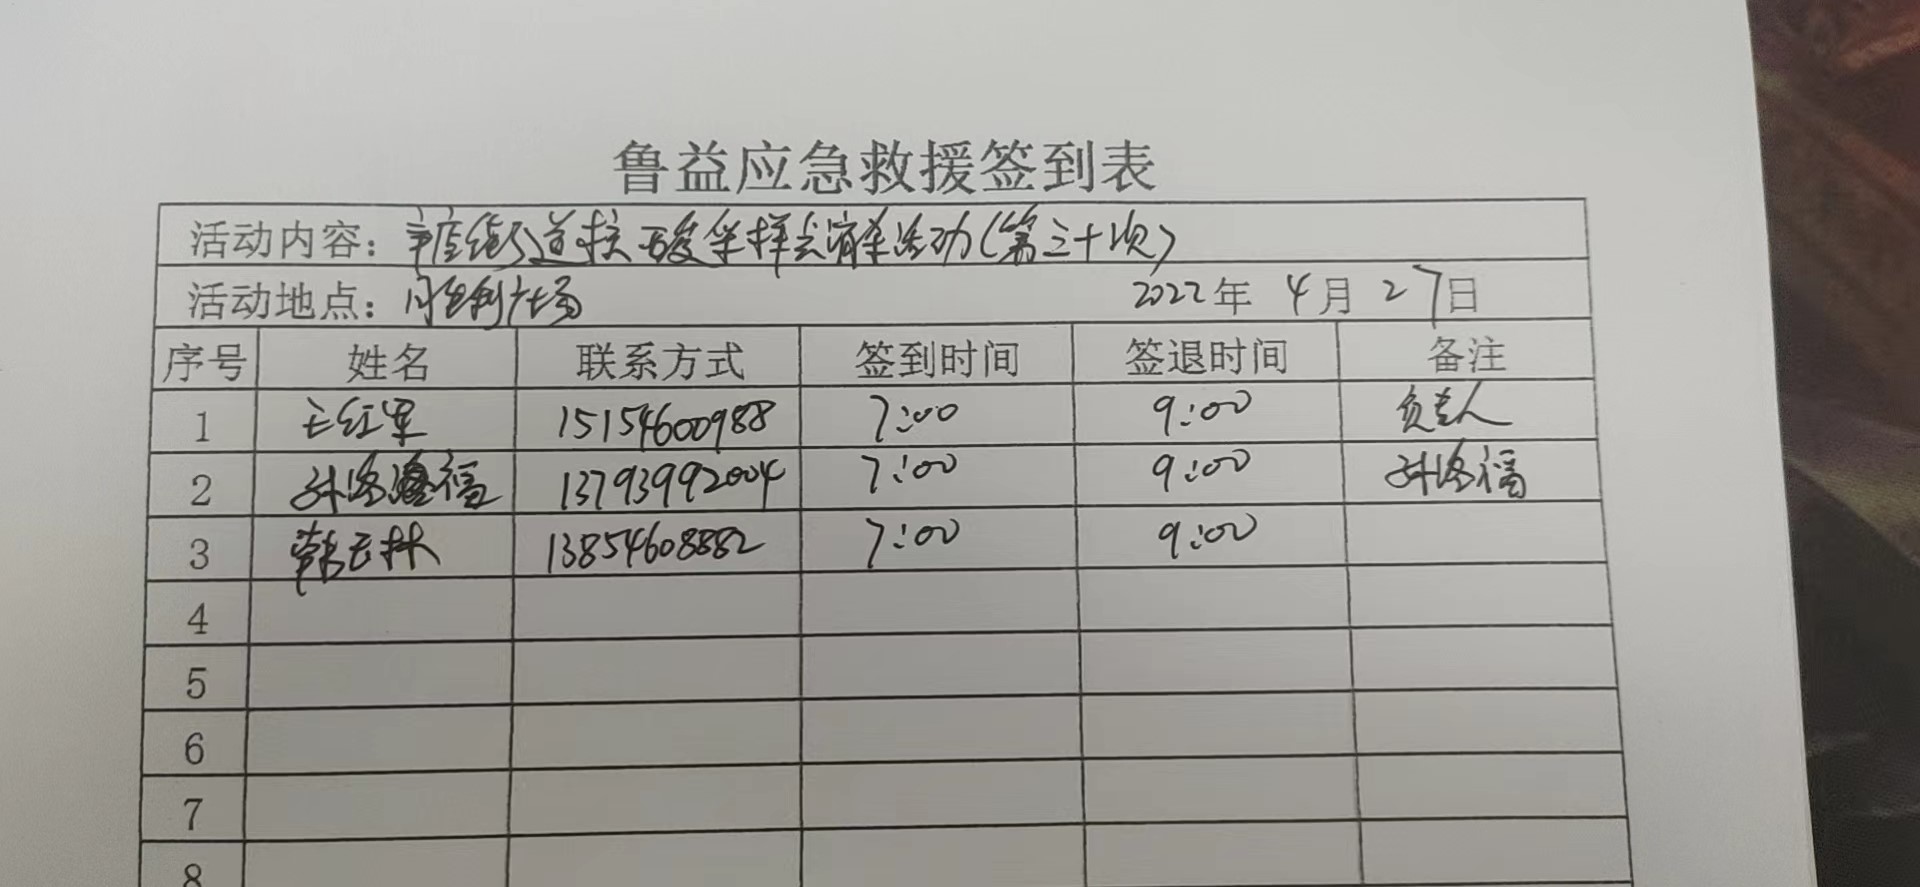 鲁益应急救援签到表
活动内容：辛店街道核酸采样点消杀活动（第三十次）
活动地点：广场 2022年 4月 27日
序号 姓名 联系方式 签到时间 签退时间 备注
1 王红军 15154600988 7:00 9:00 负责人
2 孙洛福 13793992004 7:00 9:00 孙洛福
3 韩玉林 13854608882 7:00 9:00
4
5
6
7
8